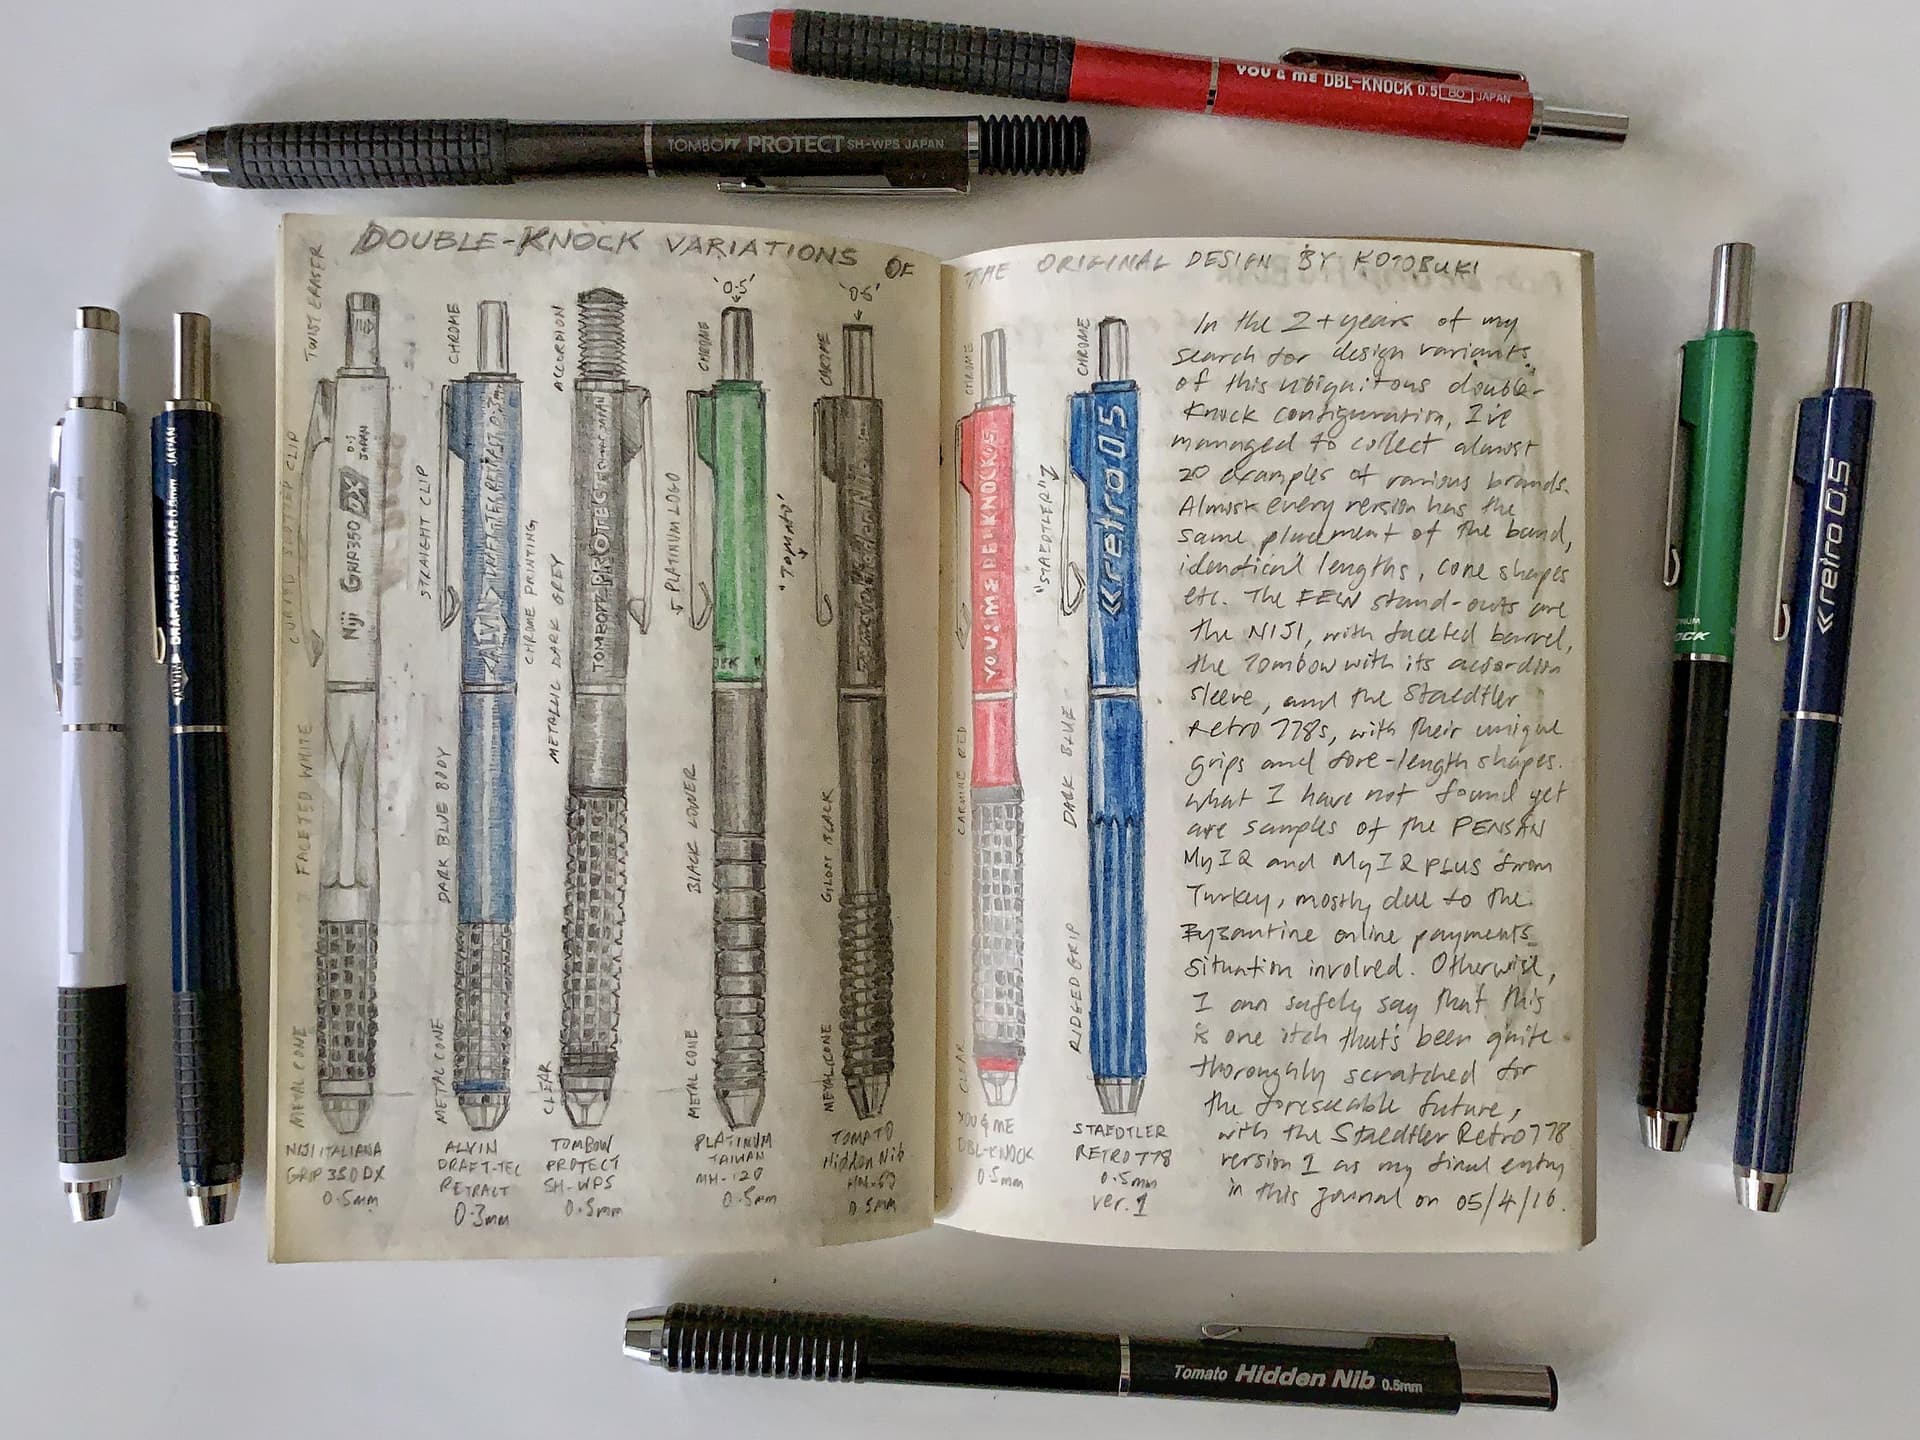 YOU & ME DBL-KNOCK 0.5 BO JAPAN
TOMBOW PROTECT SH-WPS JAPAN
DOUBLE-KNOCK VARIATIONS OF
THE ORIGINAL DESIGN BY KOTOBUKI
TWIST ERASER
CURVED SLOTTED CLIP
FACETED WHITE
METAL CONE
Niji GRIP350 DX 0.5 JAPAN
NIJI ITALIANA
GRIP 350DX
0.5mm
CHROME
STRAIGHT CLIP
DARK BLUE BODY
METAL CONE
ALVIN DRAFT-TEC RETRACT 0.3mm
CHROME PRINTING
ALVIN
DRAFT-TEC
RETRACT
0.3mm
ACCORDION
METALLIC DARK GREY
CLEAR
TOMBOW PROTECT SH-WPS JAPAN
TOMBOW
PROTECT
SH-WPS
0.5mm
'0.5'
CHROME
PLATINUM LOGO
BLACK LOWER
METAL CONE
PLATINUM
TAIWAN
MH-120
0.5mm
'0.5'
CHROME
"TOMATO"
GLOSSY BLACK
METAL CONE
TOMATO
Hidden Nib
0.5mm
CHROME
CARMINE RED
CLEAR
YOU & ME DBL-KNOCK 0.5
YOU & ME
DBL-KNOCK
0.5mm
CHROME
"STAEDTLER"
DARK BLUE
RIDGED GRIP
retro 0.5
STAEDTLER
RETRO 778
0.5mm
ver. 1
In the 2+ years of my
search for design variants
of this ubiquitous double-
knock configuration, I've
managed to collect almost
20 examples of various brands.
Almost every version has the
same placement of the band,
identical lengths, cone shapes
etc. The FEW stand-outs are
the NIJI, with faceted barrel,
the Tombow with its accordion
sleeve, and the Staedtler
Retro 778s, with their unique
grips and fore-length shapes.
What I have not found yet
are samples of the PENSAN
My IQ and My IQ PLUS from
Turkey, mostly due to the
Byzantine online payments
situation involved. Otherwise,
I can safely say that this
is one itch that's been quite
thoroughly scratched for
the foreseeable future,
with the Staedtler Retro 778
version 1 as my final entry
in this journal on 05/4/16.
ALVIN DRAFT-TEC RETRAC 0.3mm JAPAN
retro 0.5
Tomato Hidden Nib 0.5mm